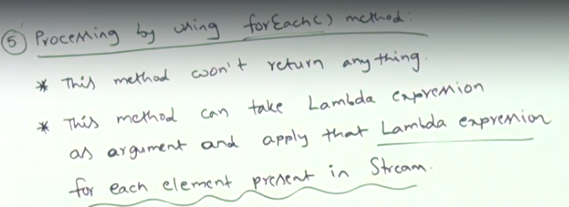 ⑤ Processing by using forEach() method:
* This method won't return any thing.
* This method can take Lambda expression
as argument and apply that Lambda expression
for each element present in Stream.